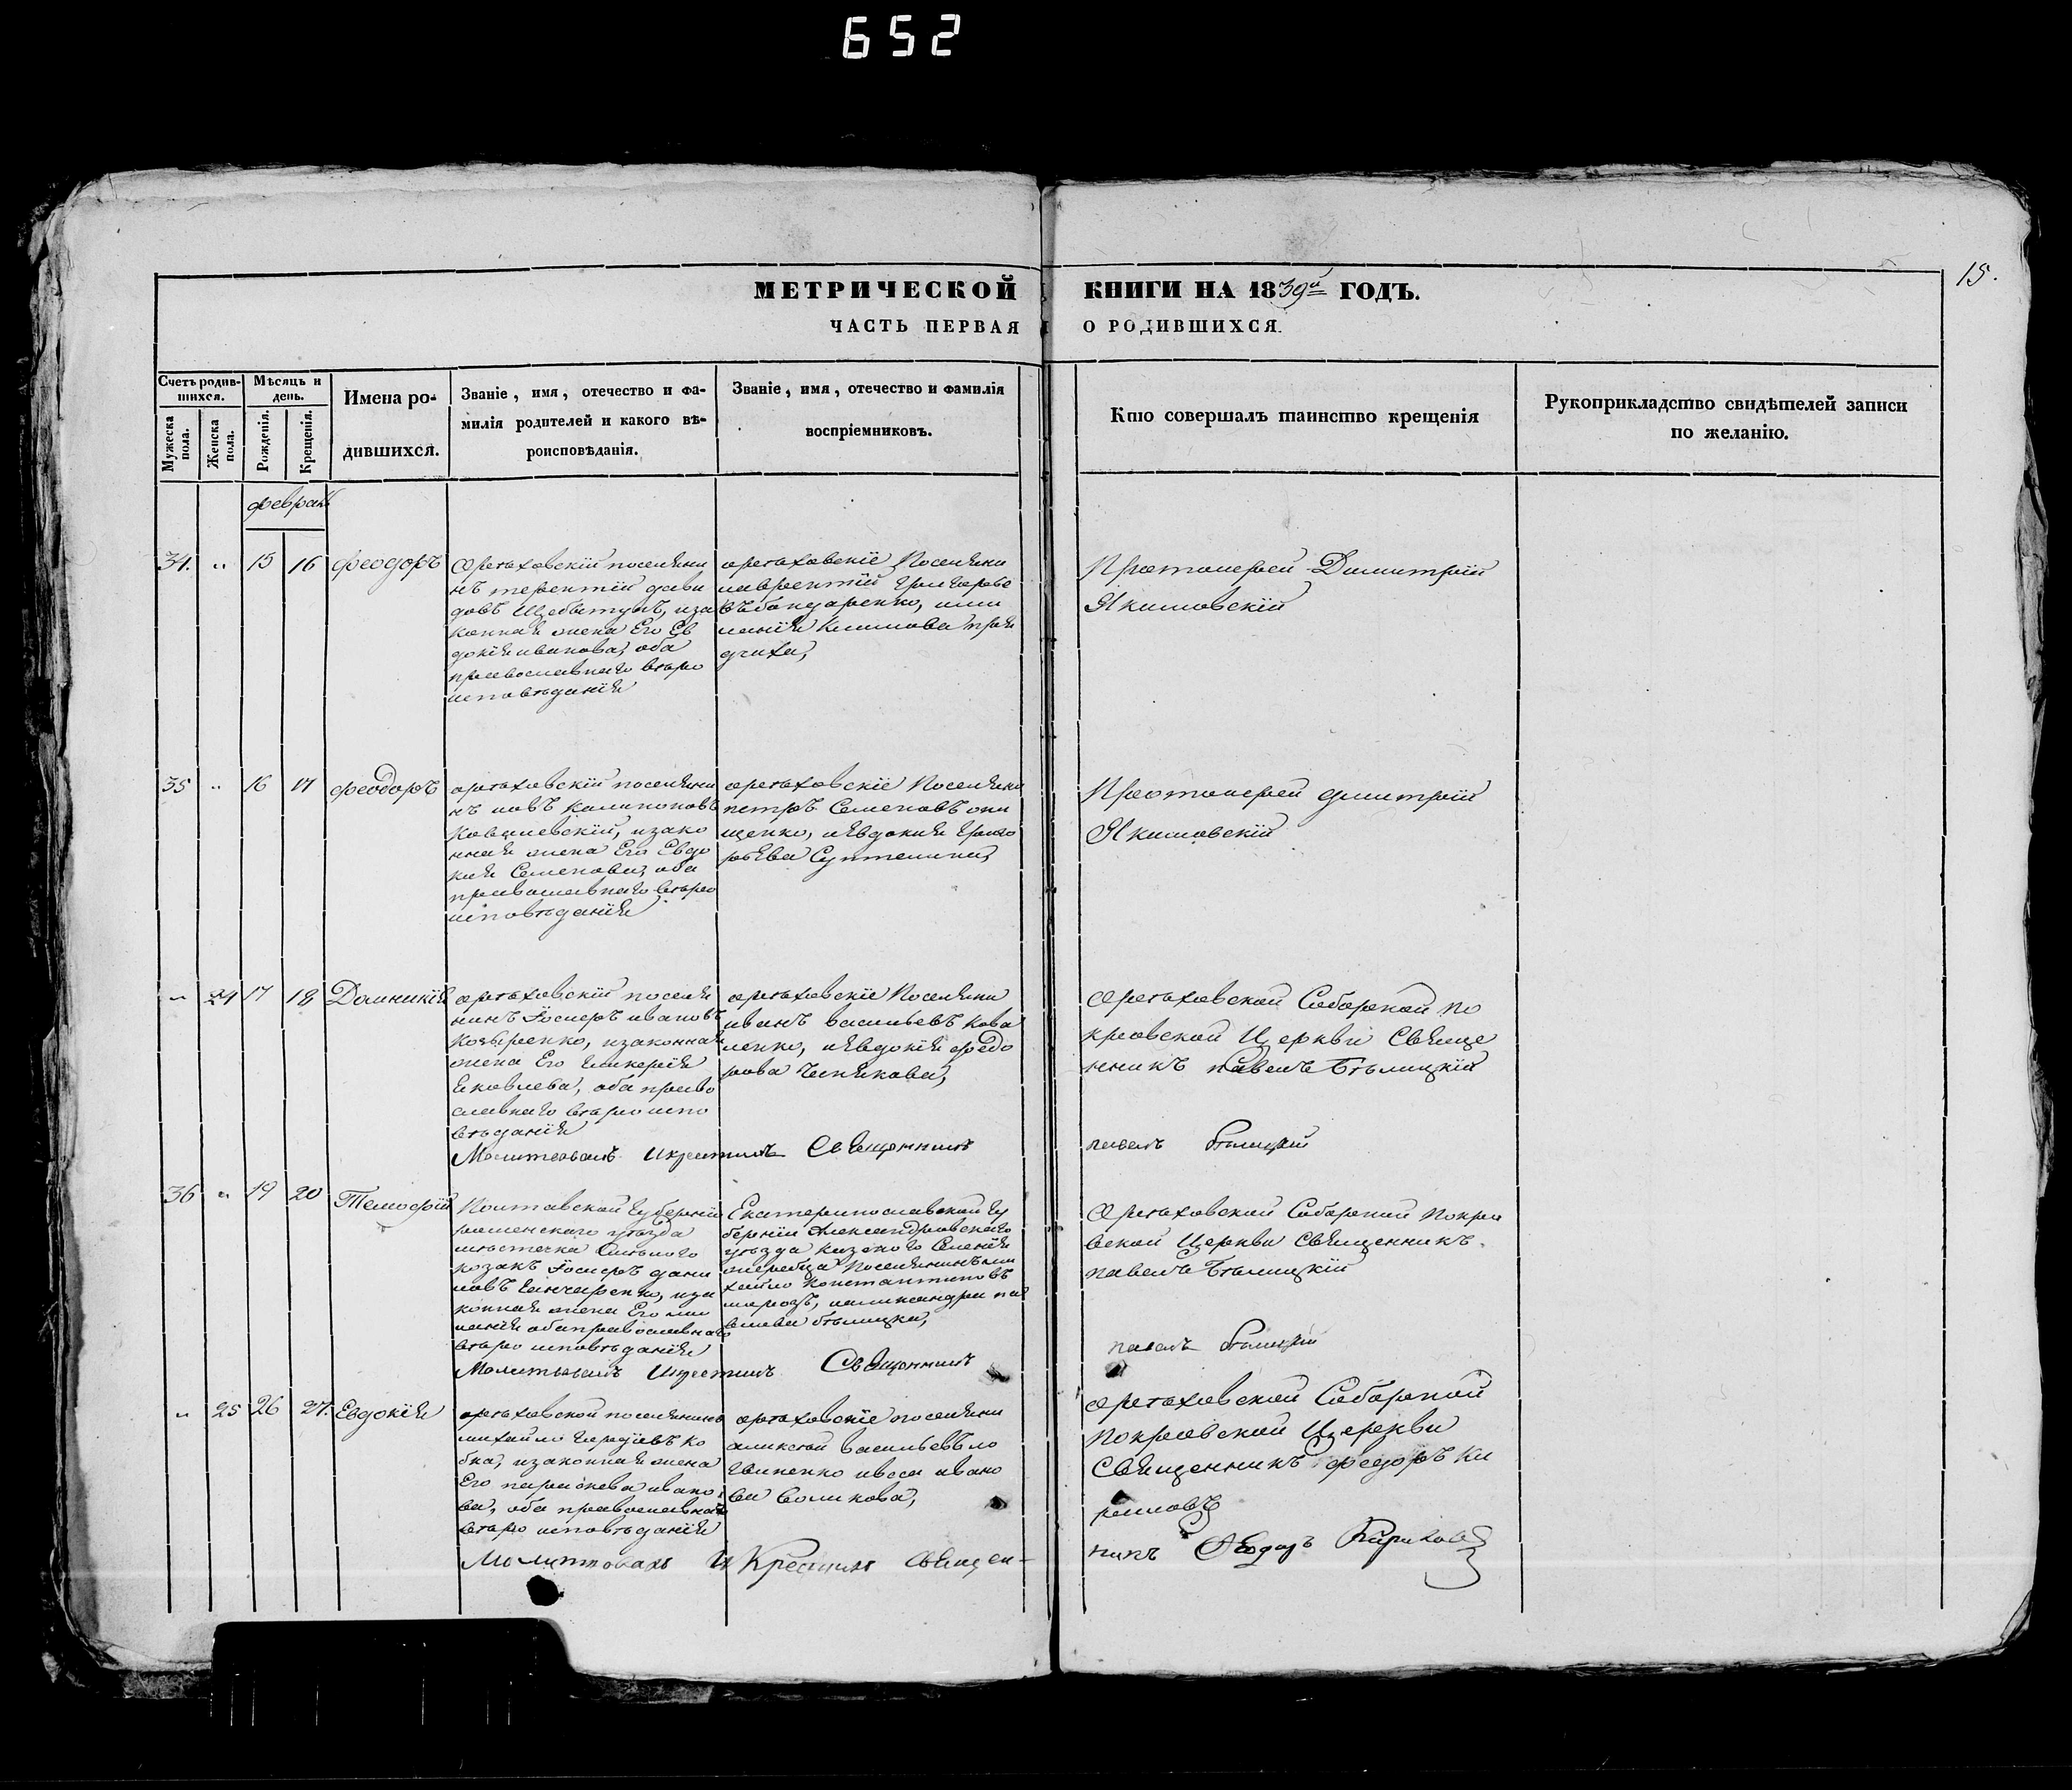 652
15.
МЕТРИЧЕСКОЙ КНИГИ НА 1839й ГОДЪ.
ЧАСТЬ ПЕРВАЯ О РОДИВШИХСЯ.
Счетъ родив-
шихся.
Мужеска пола.
Женска пола.
Мѣсяцъ и
день.
Рожденія.
Крещенія.
Имена ро-
дившихся.
Званіе, имя, отечество и фа-
милія родителей и какого вѣ-
роисповѣданія.
Званіе, имя, отечество и фамилія
воспріемниковъ.
Кто совершалъ таинство крещенія
Рукоприкладство свидѣтелей записи
по желанію.
февраль
34. " 15 16 феодоръ
Орѣховскій поселяни
нъ терентій дави
довъ изза
конная жена Его Ев
докія иванова, оба
православнаго вѣро
исповѣданія
орѣховскіе Поселяни
лаврентій Григорьо
въ бондаренко, и
Климова
Протоіерей Димитрій
Якимовскій
35 " 16 17 феодоръ
орѣховскій поселяни
нъ Калиниковъ
Ковалевскій, изако
нная жена Его Евдо
кия Семенова, оба
православнаго вѣро
исповѣданія
орѣховскіе Поселяни
петръ Семеновъ они
щенко, иЕвдокия Григо
рьева
Протоіерей дмитрій
Якимовскій
" 24 17 18 Домникія
орѣховскій поселя
нинъ Іосифъ ивановъ
Козыренко, изаконная
жена Его Гликерія
Яковлева, оба право
славнаго вѣроиспо
вѣданія
орѣховскіе Поселяни
иванъ васильевъ Кова
ленко, иЕвдокія федо
рова
Орѣховской Соборной по
кровской Церкви Свяще
нникъ павелъ Бѣлицкій
Молитвовалъ Икрестилъ Священникъ павелъ Бѣлицкій
36 " 19 20 Тимофій
Полтавской Губерніи
роменского уѣзда
мѣстечка
козакъ Іосифъ дани
ловъ Гончаренко, иза
конная жена Его
оба православнаго
вѣро исповѣданія
Екатеринославской Гу
берніи Александровскаго
уѣзда казеного Селенія
жеребца Поселянинъ ми
хайло Константиновъ
морозъ, иаликсандра па
влова бѣлицка,
Орѣховской Соборной покро
вской Церкви Священникъ
павелъ Бѣлицкій
Молитвовалъ Икрестилъ Священникъ павелъ Бѣлицкій
" 25 26 27. Евдокія
орѣховской поселянинъ
михайло ко
бка, изаконная жена
Его параскева ивано
ва, оба православнаго
вѣро исповѣданія
орѣховскіе поселяни
аликсѣй васильевъ ло
гвиненко ивано
ва Воликова,
орѣховской Соборной
покровской Церкви
Священникъ федоръ Ки
риловъ
Молитвовалъ И Крестилъ Священ-
никъ Ѳеодоръ Кириловъ